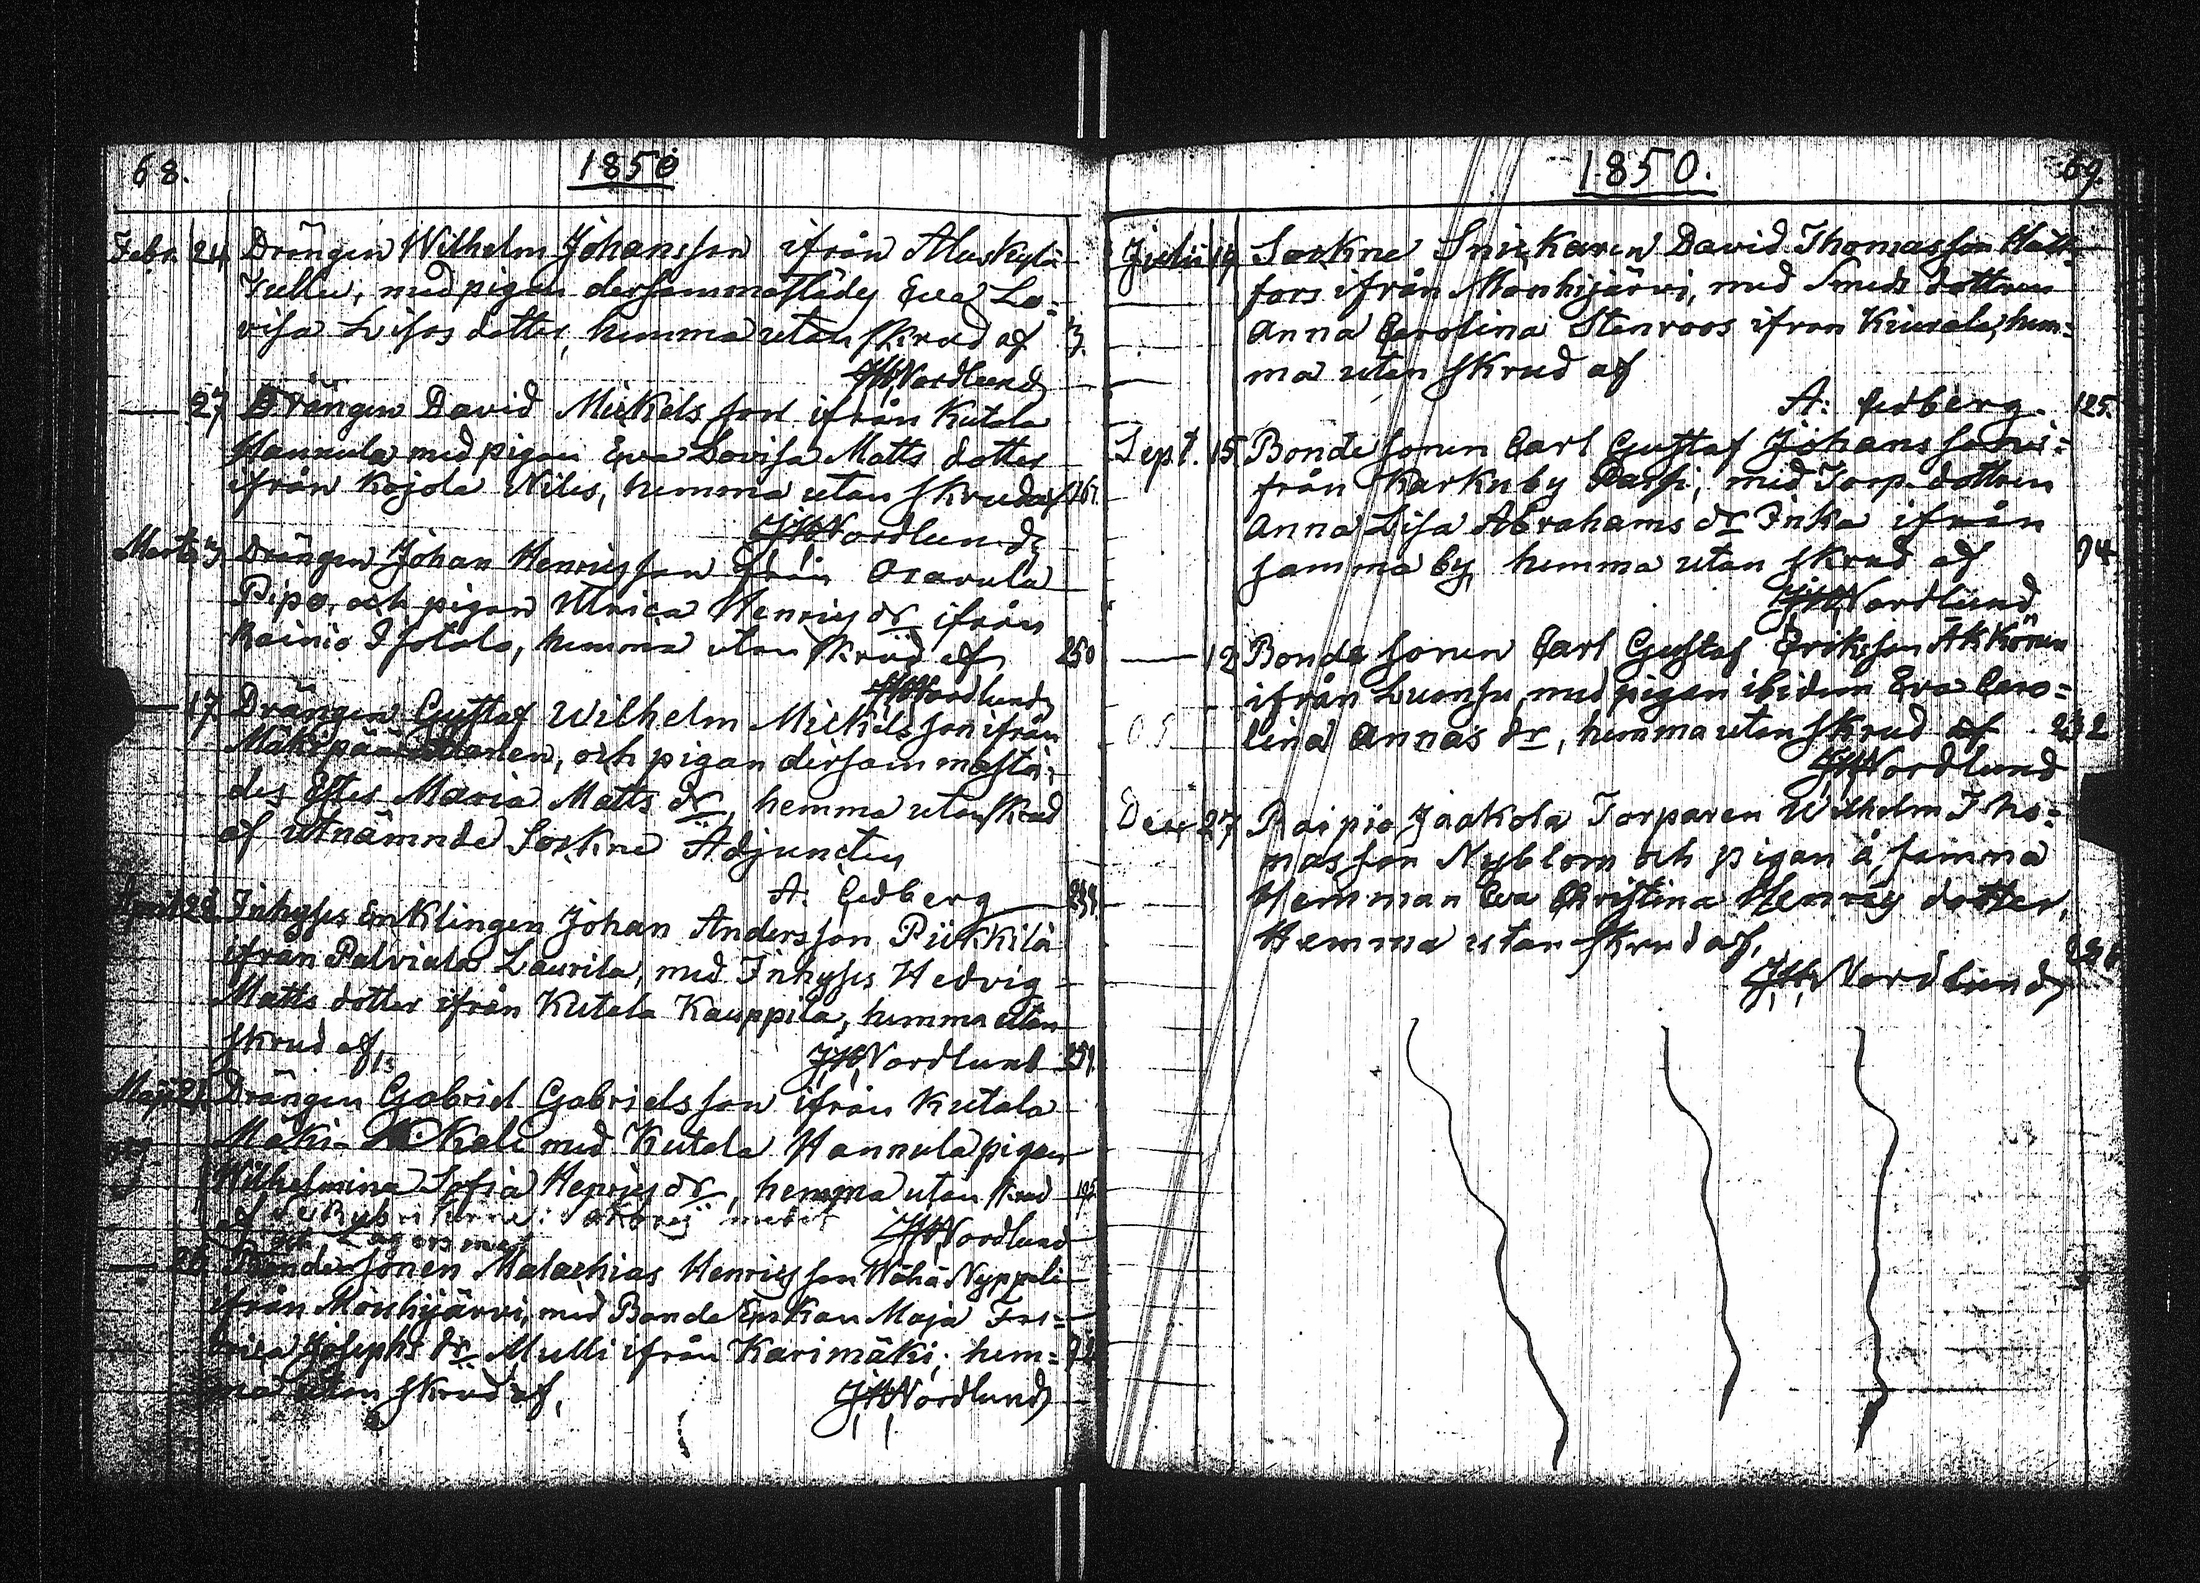 68.
1850
Febr. 24 Drängen Wilhelm Johansson ifrån Aluskylä
Tullu, med pigan dersammastädes Eva Lo=
visa Lisas dotter, hemma utan skrud af 3.
JHNordlund
— 27 Drängen David Mickels son ifrån Kutala
Hannula med pigan Eva Lovisa Matts dotter
ifrån Kojola Niles, hemma utan skrud af 261.
JHNordlund
Marti 3 Drängen Johan Henricsson från Osarula
Pipo, och pigan Ulrica Henrics dr ifrån
Rainio Isotalo, hemma utan skrud af 250
JHNordlund
— 17. Drängen Gustaf Wilhelm Mickelsson ifrån
och pigan dersammastä-
des Ester Maria Matts dr, hemma utan skrud
af utnämnde Sockne Adjuncten
A: Cedberg
April 28 Inhyses Enklingen Johan Andersson Piikkilä
ifrån Palviala Laurila, med Inhyses Hedvig
Matts dotter ifrån Kutala Kauppila, hemma utan
skrud af, JHNordlund
Maji 21. Drängen Gabriel Gabrielsson ifrån Kutala
Mäki- med Kutala Hannula pigan
Wilhelmina Sofia Henrics dr, hemma utan skrud
af JHNordlund
— 26 Bondesonen Malachias Henricsson Wähä Nyppeli
ifrån Mouhijärvi, med Bonde Enkan Maja Fre=
drica Josephs dr Mulli ifrån Karimäki, hem=
ma utan skrud af, JHNordlund
1850.
69.
Julii 19 Sockne Snickaren David Thomasson
fors ifrån Mouhijärvi, med Smeds dottren
Anna Carolina Stenroos ifrån Kiurala, hem=
ma utan skrud af
A: Cedberg. 125.
Sept. 15. Bonde sonen Carl Gustaf Johansson i=
från Karkuby Passi, med Torp. dottren
Anna Lisa Abrahams dr Inka ifrån
samma by, hemma utan skrud af 94
JHNordlund
— 12 Bonde sonen Carl Gustaf Eriksson Äkkönen
ifrån Luonsu, med pigan ibidem Eva Caro=
lina Annas dr, hemma utan skrud af 232
JHNordlund
Dec 27 Raipio Jaakola Torparen Wilhelm Tho=
masson Nyblom och pigan å samma
Hemman Eva Christina Henrics dotter,
Hemma utan skrud af,
JH Nordlund